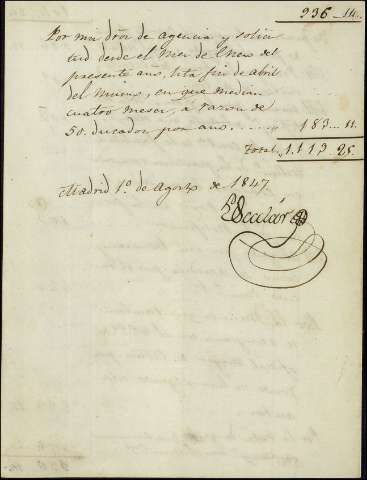 936..14..
Por mis dros de agencia y solici
tud desde el mes de Enero del
presente año, hta fin de abril
del mismo, en que median
cuatro meses, a razon de
50. ducados por año...... 183..11.
Total.. 1.113..25.
Madrid 1º de Agosto de 1847.
Escalár